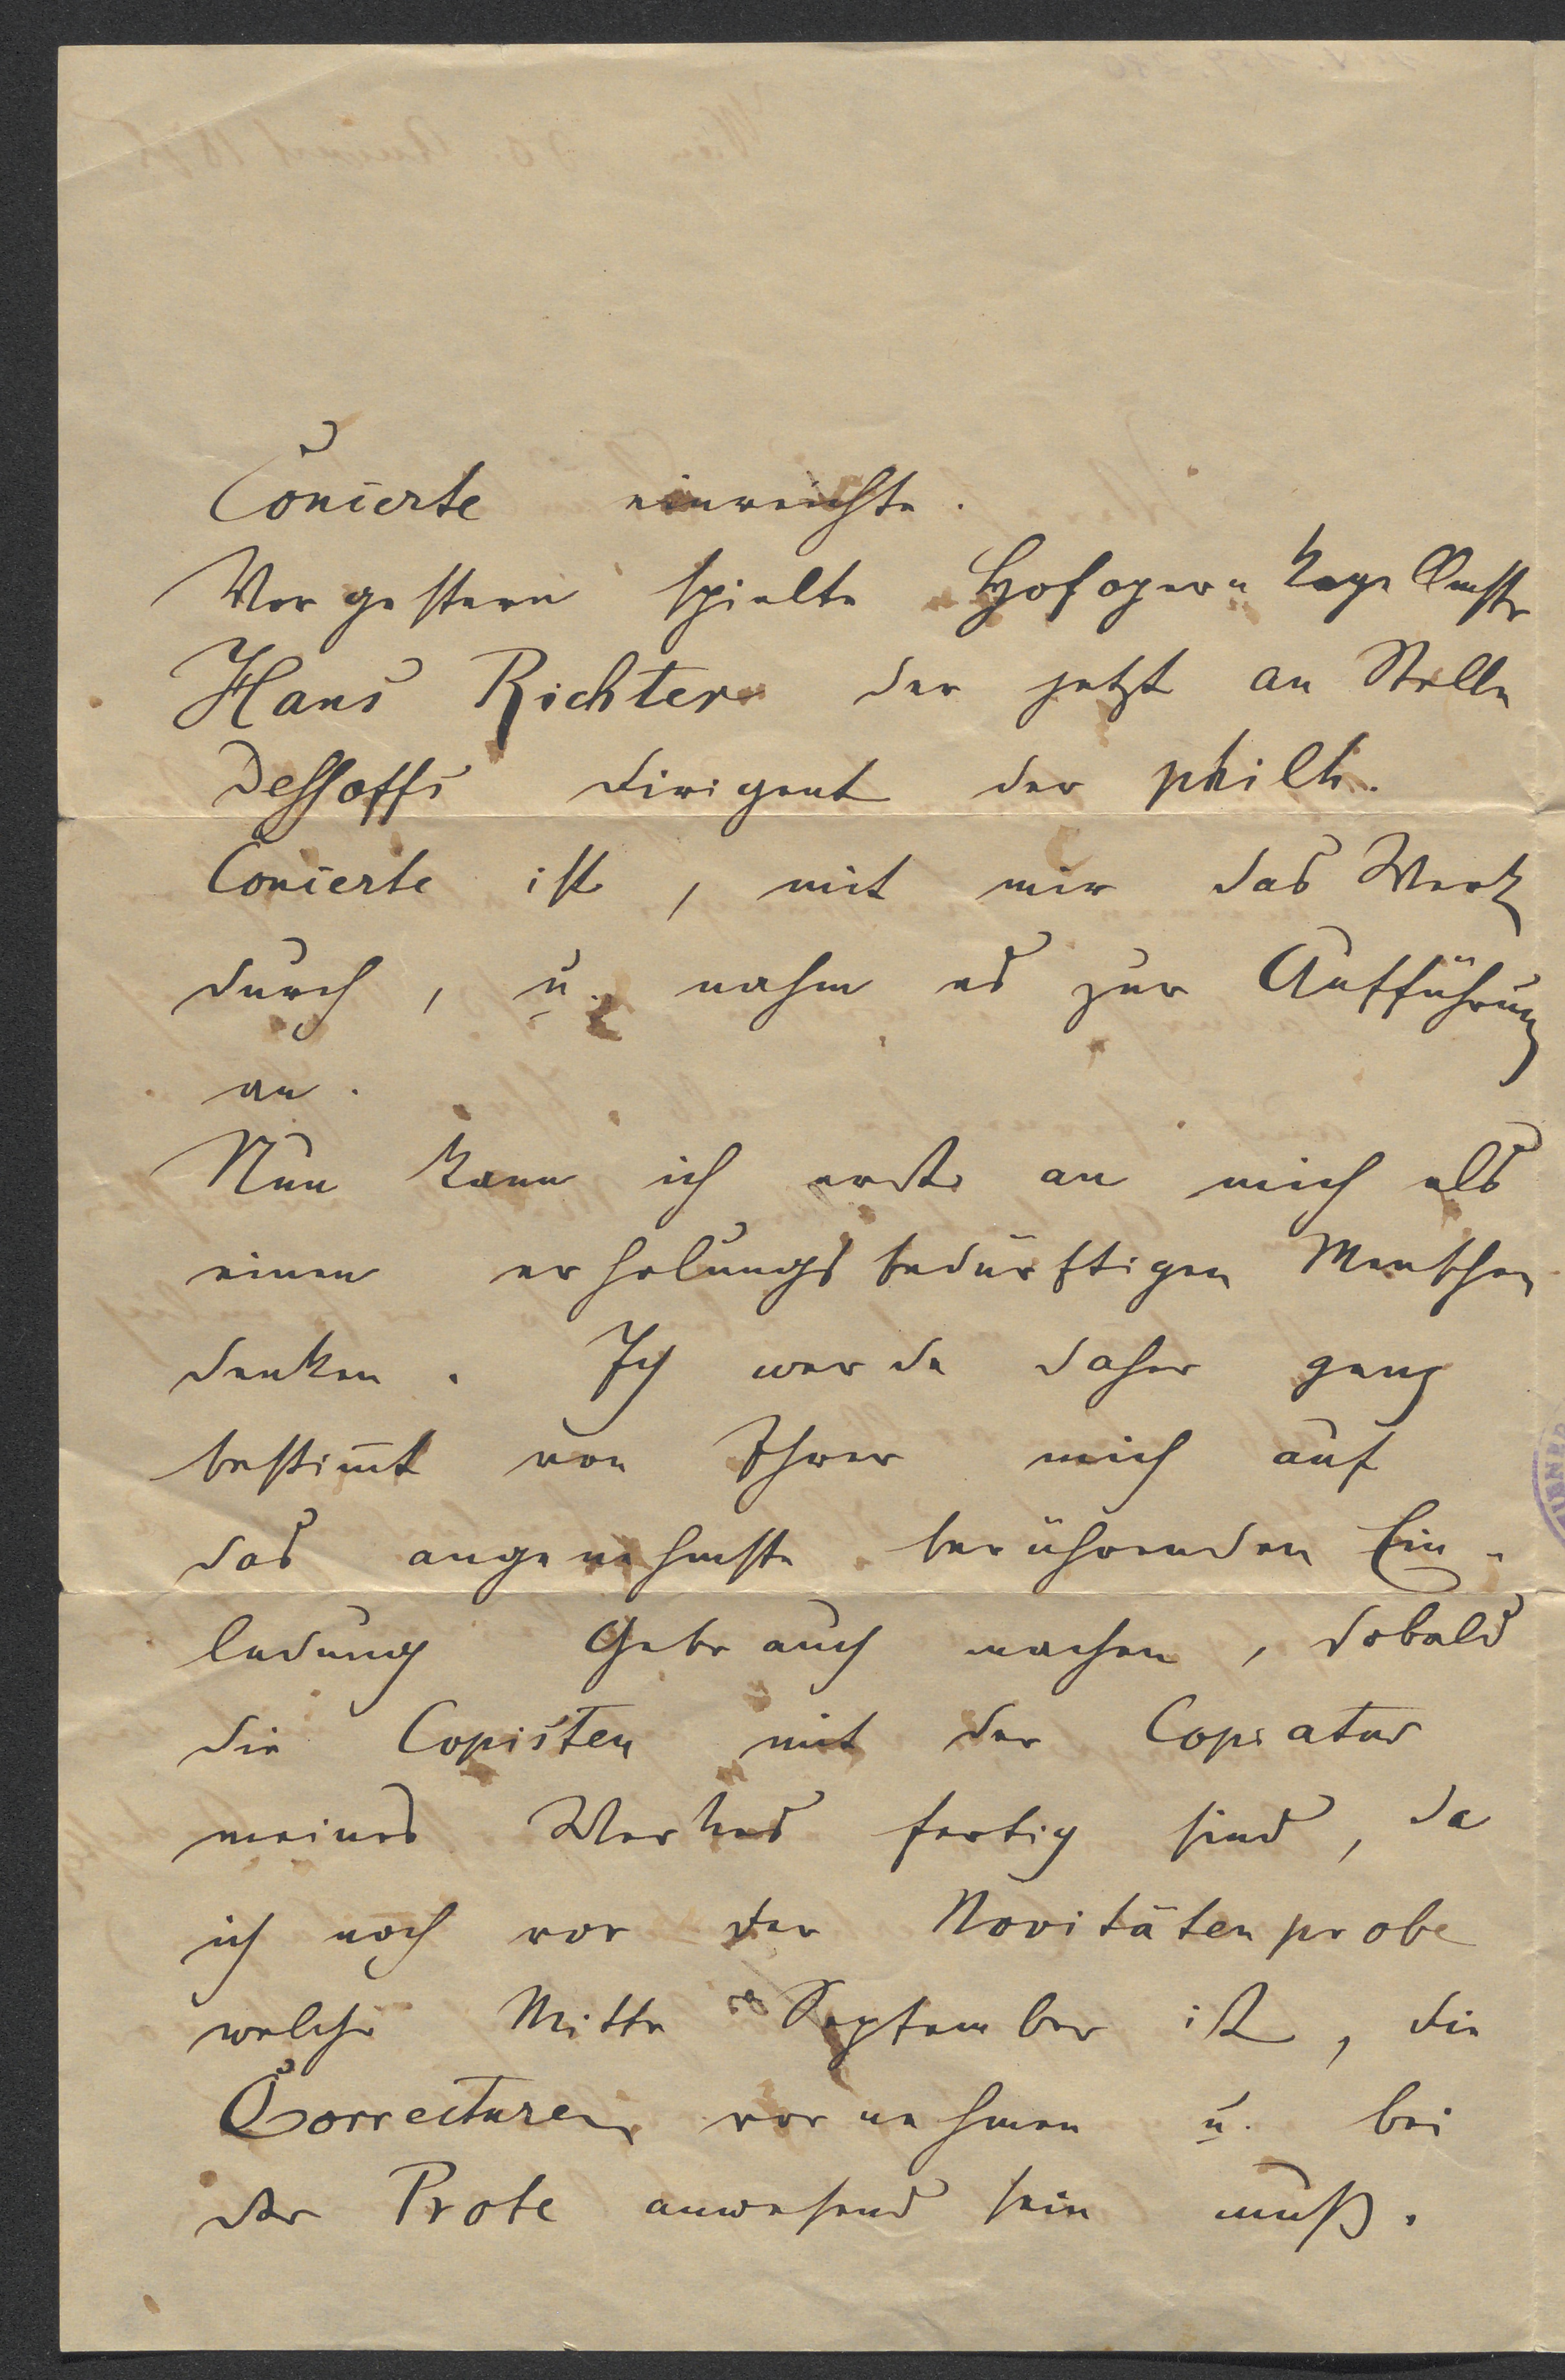 Concerte einreichte.
Vorgestern spielte Hofopern Kapellmstr
Hans Richter der jetzt an Stelle
Dessoffs Dirigent der philh.
Concerte ist, mit mir das Werk
durch, u. nahm es zur Aufführung
an.
Nun kann ich erst an mich als
einen erholungsbedürftigen Menschen
denken. Ich werde daher ganz
bestim̅t von Ihrer mich auf
das angenehmste berührenden Ein-
ladung Gebrauch machen, sobald
die Copisten mit der Copiatur
meines Werkes fertig sind, da
ich noch vor der Novitätenprobe
welche Mitte September ist, die
Correcturen vornehmen u. bei
der Probe anwesend sein muß.